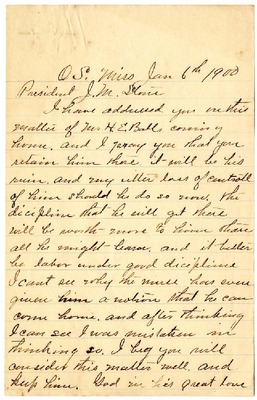 O.S. Miss Jan 6th 1900
President J.M. Stone
I have addressed you on this
matter of Mr H.E. Butts coming
home. and I pray you that you
retain him there it will be his
ruin. and my utter loss of controll
of him should he do so now, the
dicipline that he will get there
will be worth more to him than
all he might learn. and it better
he labor under good dicipline
I cant see why he must has ever
given him a notion that he can
come home, and after thinking
I can see I was mistaken in
thinking so. I beg you will
consider this matter well and
keep him. God in his great love